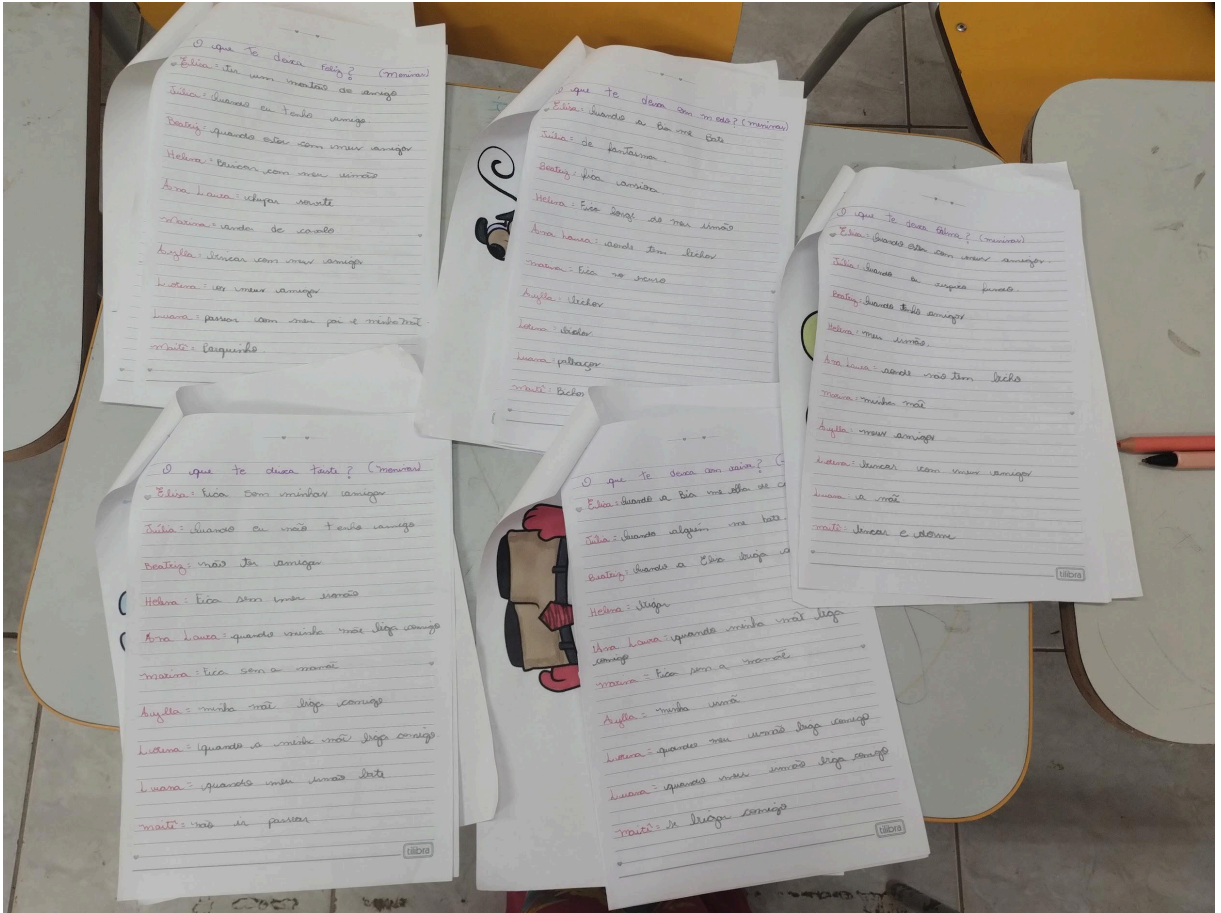 O que te deixa Feliz? (meninas)
Elisa = ter um montão de amigo
Júlia = Quando eu tenho amigo
Beatriz = quando estou com meus amigos
Helena = Brincar com meu irmão
Ana Laura = chupar sorvete
Marina = andar de cavalo
Aylla = brincar com meus amigos
Lorena = os meus amigos
Luana = passear com meu pai e minha mãe
Maitê = Parquinho
que te deixa com medo? (meninas)
Elisa = Quando a Bia me bate
Júlia = de fantasma
Beatriz = fica ansiosa
Helena = Fica longe do meu irmão
Ana Laura = aonde tem bichos
Marina = Fica no
Aylla = bichos
Lorena = bichos
Luana = palhaços
Maitê = Bichos
O que te deixa calma? (meninas)
Elisa = Quando estou com meus amigos.
Júlia = Quando eu
Beatriz = Quando tenho amigos
Helena = meu irmão.
Ana Laura = aonde não tem bicho
Marina = minha mãe
Aylla = meus amigos
Lorena = brincar com meus amigos
Luana = a mãe
Maitê = brincar e dormir
tilibra
O que te deixa triste? (meninas)
Elisa = Fica sem minhas amigas
Júlia = Quando eu não tenho amigo
Beatriz = não ter amigos
Helena = Fica sem meu irmão
Ana Laura = quando minha mãe briga comigo
Marina = Fica sem a mamãe
Aylla = minha mãe briga comigo
Lorena = quando a minha mãe briga comigo
Luana = quando meu irmão bate
Maitê = não ir passear
tilibra
O que te deixa com raiva? (
Elisa = Quando a Bia me olha de c
Júlia = Quando alguém me bate
Beatriz = Quando a Elisa briga c
Helena = brigar
Ana Laura = quando minha mãe briga
comigo
Marina = Fica sem a mamãe
Aylla = minha irmã
Lorena = quando meu irmão briga comigo
Luana = quando meu irmão briga comigo
Maitê = se brigar comigo
tilibra